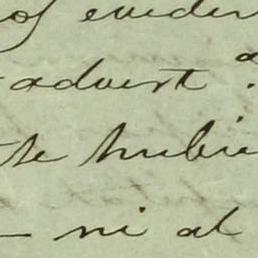 of eviden
advert a.
te hubie
ni al